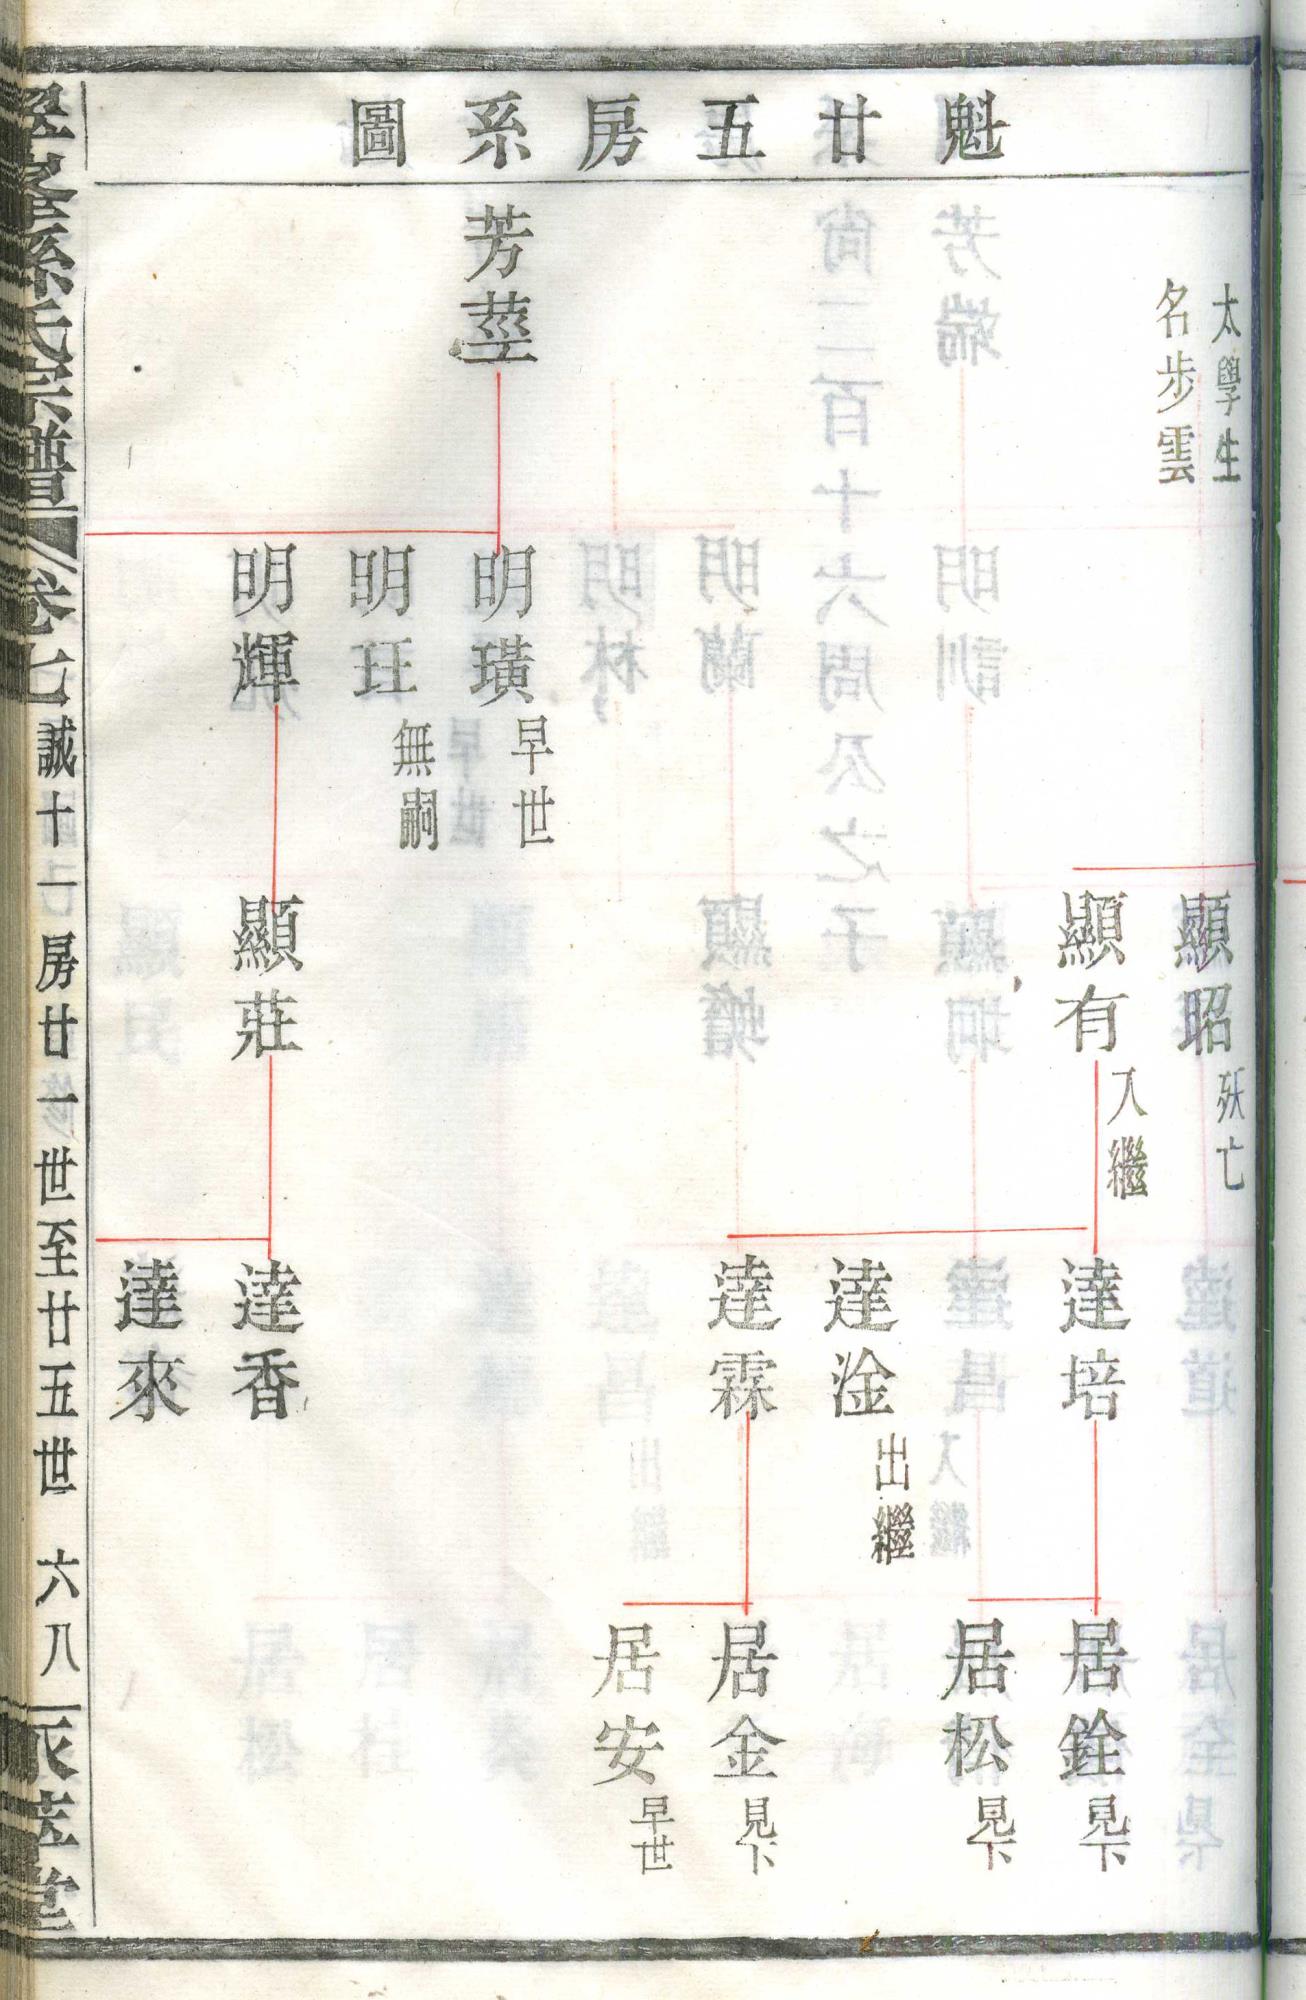 魁廿五房系圖
太學生
名步雲
芳莖
明璜 早世
明玨 無嗣
明輝
顯昭 殀亡
顯有 入繼
顯莊
達培
達淦 出繼
達霖
達香
達來
居銓 見下
居松 見下
居金 見下
居安 早世
孫氏宗譜 卷七 誠十一房廿一世至廿五世 六八